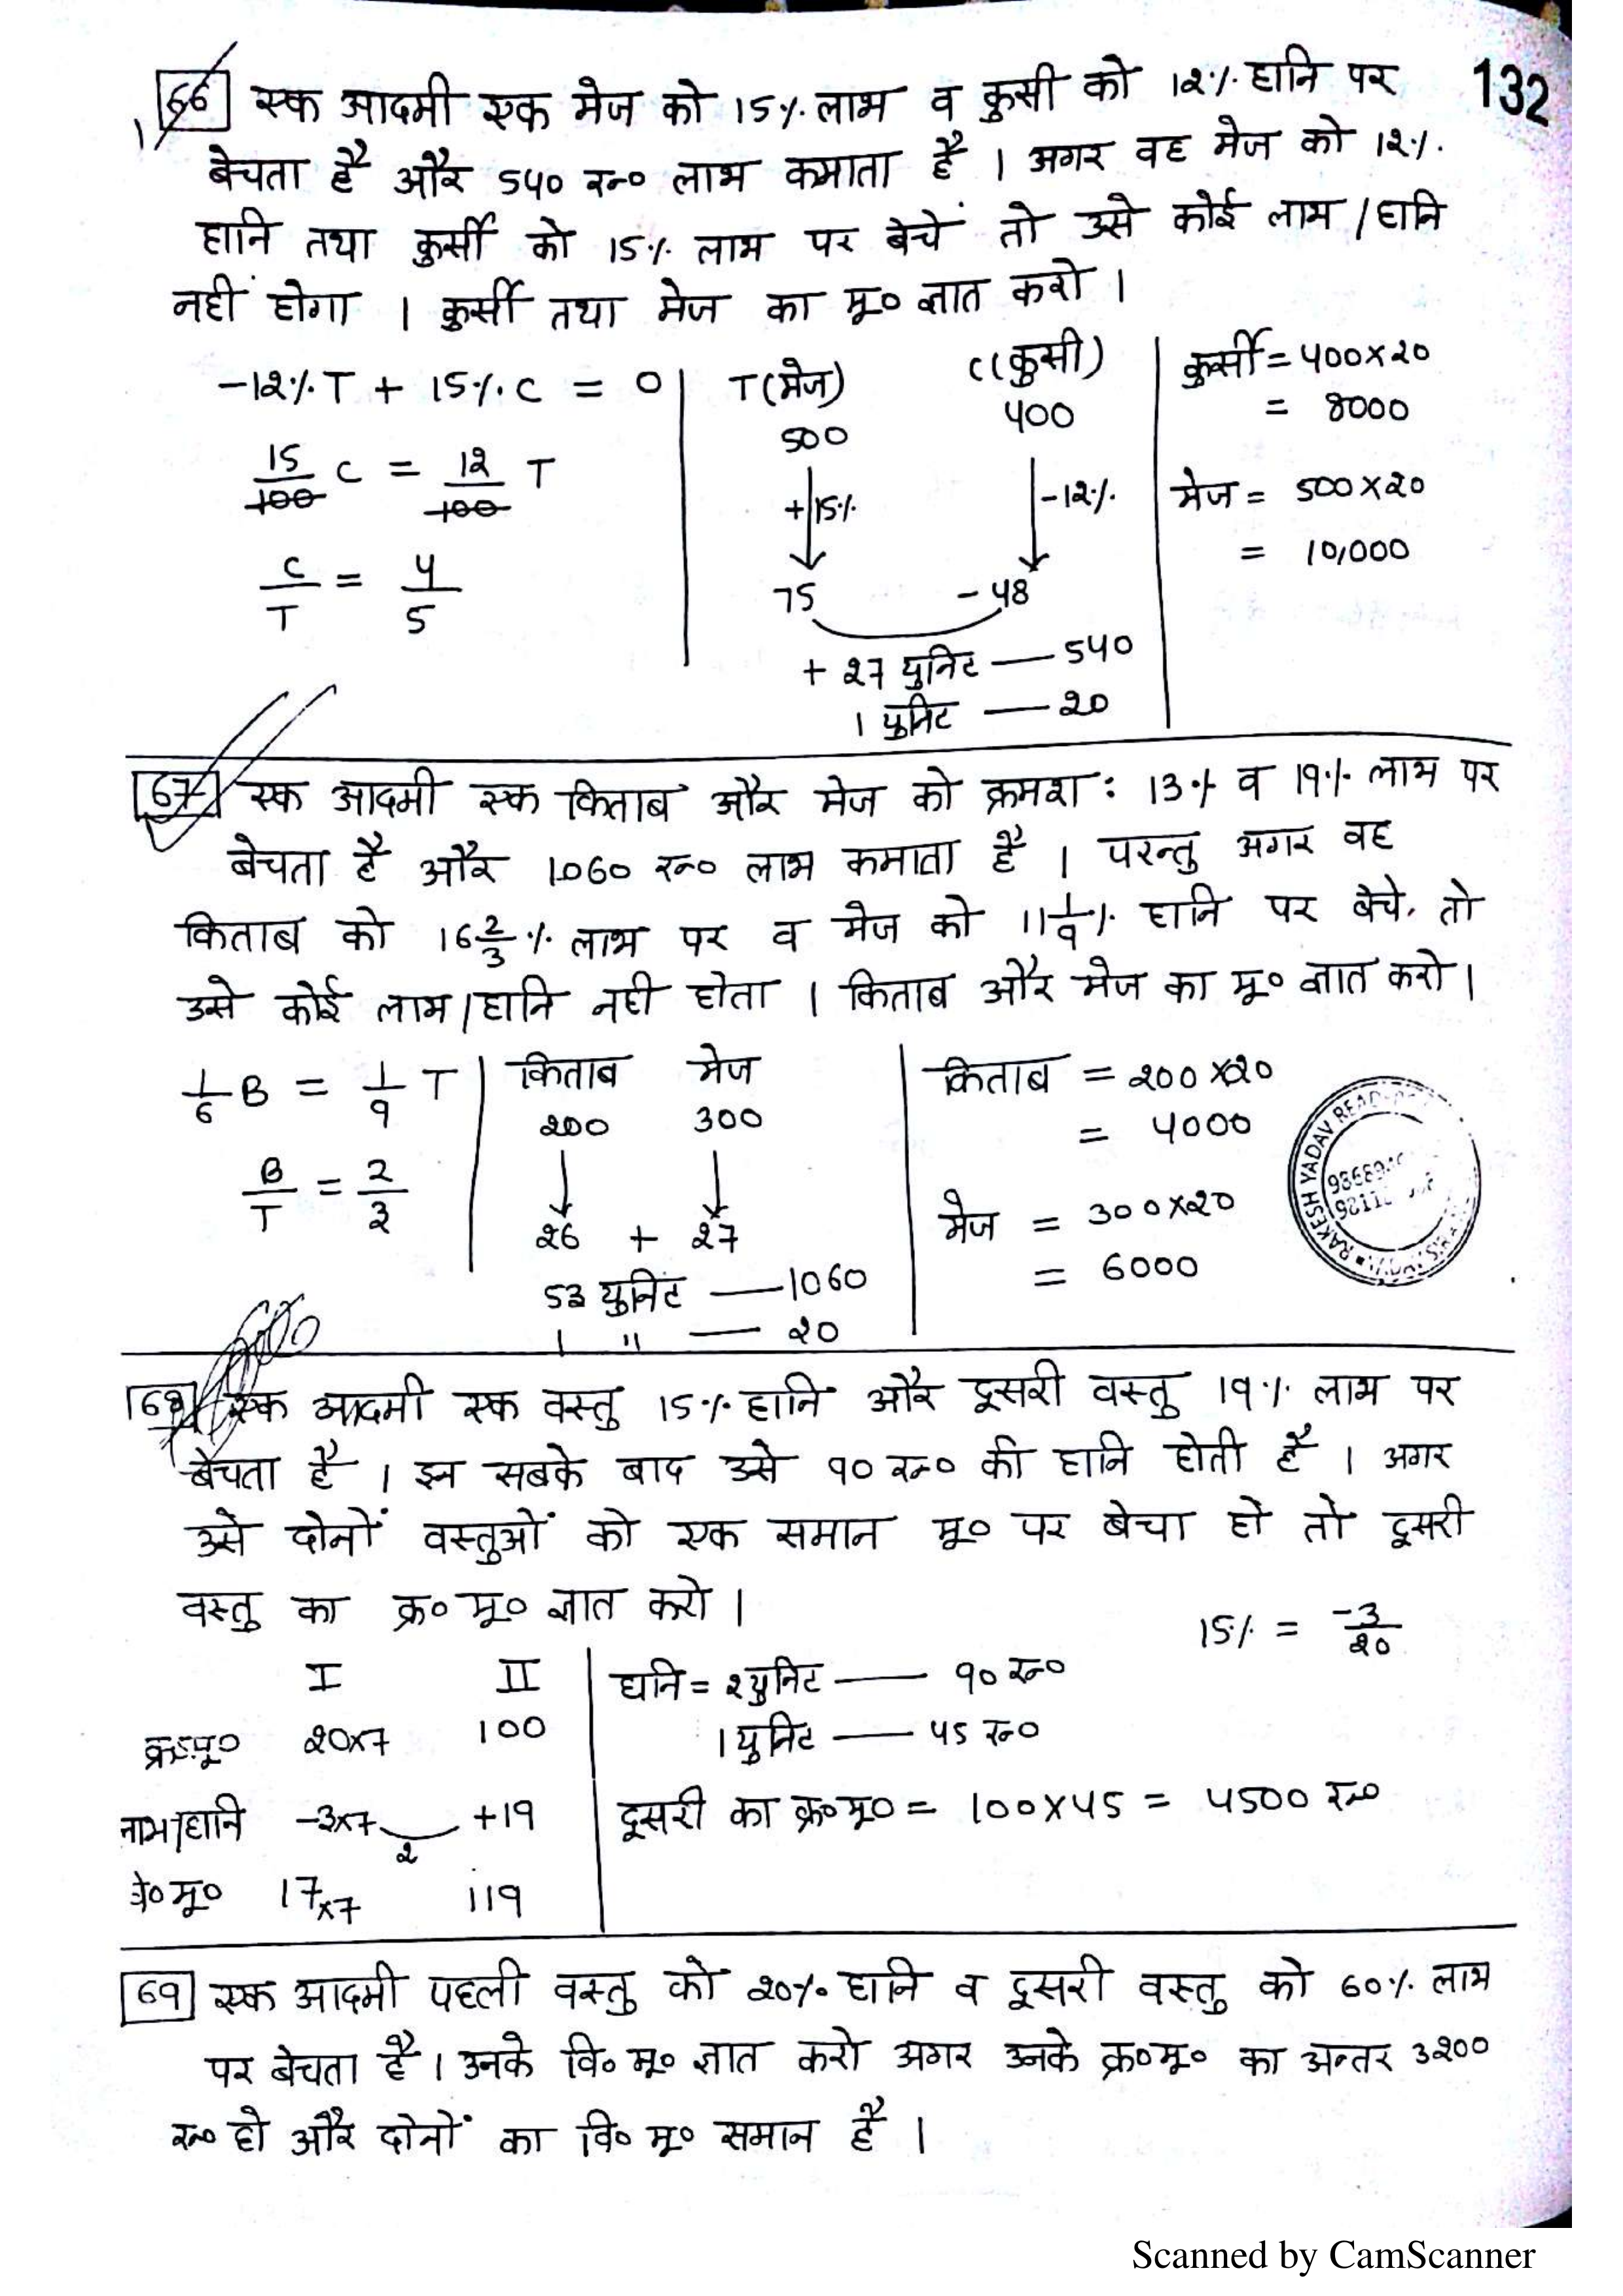 132
66 एक आदमी एक मेज को 15% लाभ व कुर्सी को 12% हानि पर
बेचता है और 540 रू० लाभ कमाता है । अगर वह मेज को 12%
हानि तथा कुर्सी को 15% लाभ पर बेचें तो उसे कोई लाभ/हानि
नहीं होगा । कुर्सी तथा मेज का मू० ज्ञात करो ।
-12% T + 15% C = 0
15/100 C = 12/100 T
C/T = 4/5
T(मेज) C(कुर्सी)
500 400
+15% -12%
75 -48
+ 27 युनिट — 540
1 युनिट — 20
कुर्सी = 400×20
= 8000
मेज = 500×20
= 10,000
67 एक आदमी एक किताब और मेज को क्रमश: 13% व 19% लाभ पर
बेचता है और 1060 रू० लाभ कमाता है । परन्तु अगर वह
किताब को 16 2/3 % लाभ पर व मेज को 11 1/9 % हानि पर बेचे, तो
उसे कोई लाभ/हानि नही होता । किताब और मेज का मू० ज्ञात करो ।
1/6 B = 1/9 T
B/T = 2/3
किताब मेज
200 300
26 + 27
53 युनिट — 1060
1 " — 20
किताब = 200×20
= 4000
मेज = 300×20
= 6000
RAKESH YADAV READ
68 एक आदमी एक वस्तु 15% हानि और दूसरी वस्तु 19% लाभ पर
बेचता है । इन सबके बाद उसे 90 रू० की हानि होती है । अगर
उसे दोनों वस्तुओं को एक समान मू० पर बेचा हो तो दूसरी
वस्तु का क्र० मू० ज्ञात करो ।
15% = -3/20
I II
क्र०मू० 20×7 100
लाभ/हानि -3×7 +19
2
वि० मू० 17×7 119
हानि = 2 युनिट — 90 रू०
1 युनिट — 45 रू०
दूसरी का क्र०मू० = 100×45 = 4500 रू०
69 एक आदमी पहली वस्तु को 20% हानि व दूसरी वस्तु को 60% लाभ
पर बेचता है । उनके वि० मू० ज्ञात करो अगर उनके क्र०मू० का अन्तर 3200
रू० हो और दोनों का वि० मू० समान है ।
Scanned by CamScanner